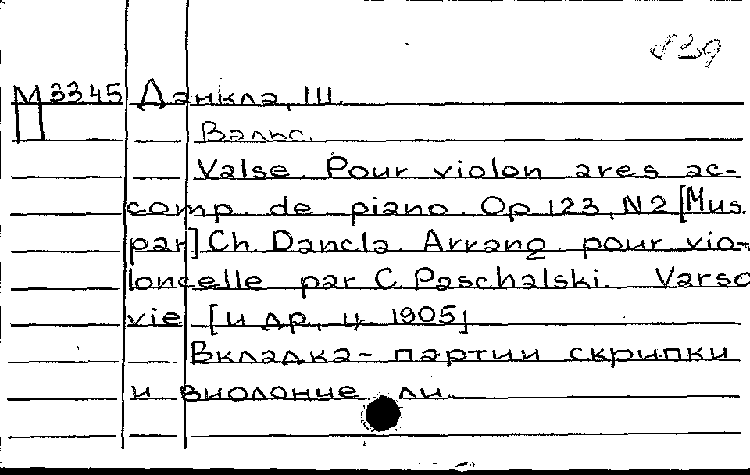 829
М 3345 Данкла, Ш.
Вальс.
Valse. Pour violon ares ac-
comp. de piano. Op 123, N2 [Mus.
par] Ch. Dancla. Arrang. pour vio-
loncelle par C. Paschalski. Varso
vie [и др., ц. 1905]
Вкладка - партии скрипки
и виолонче ли.